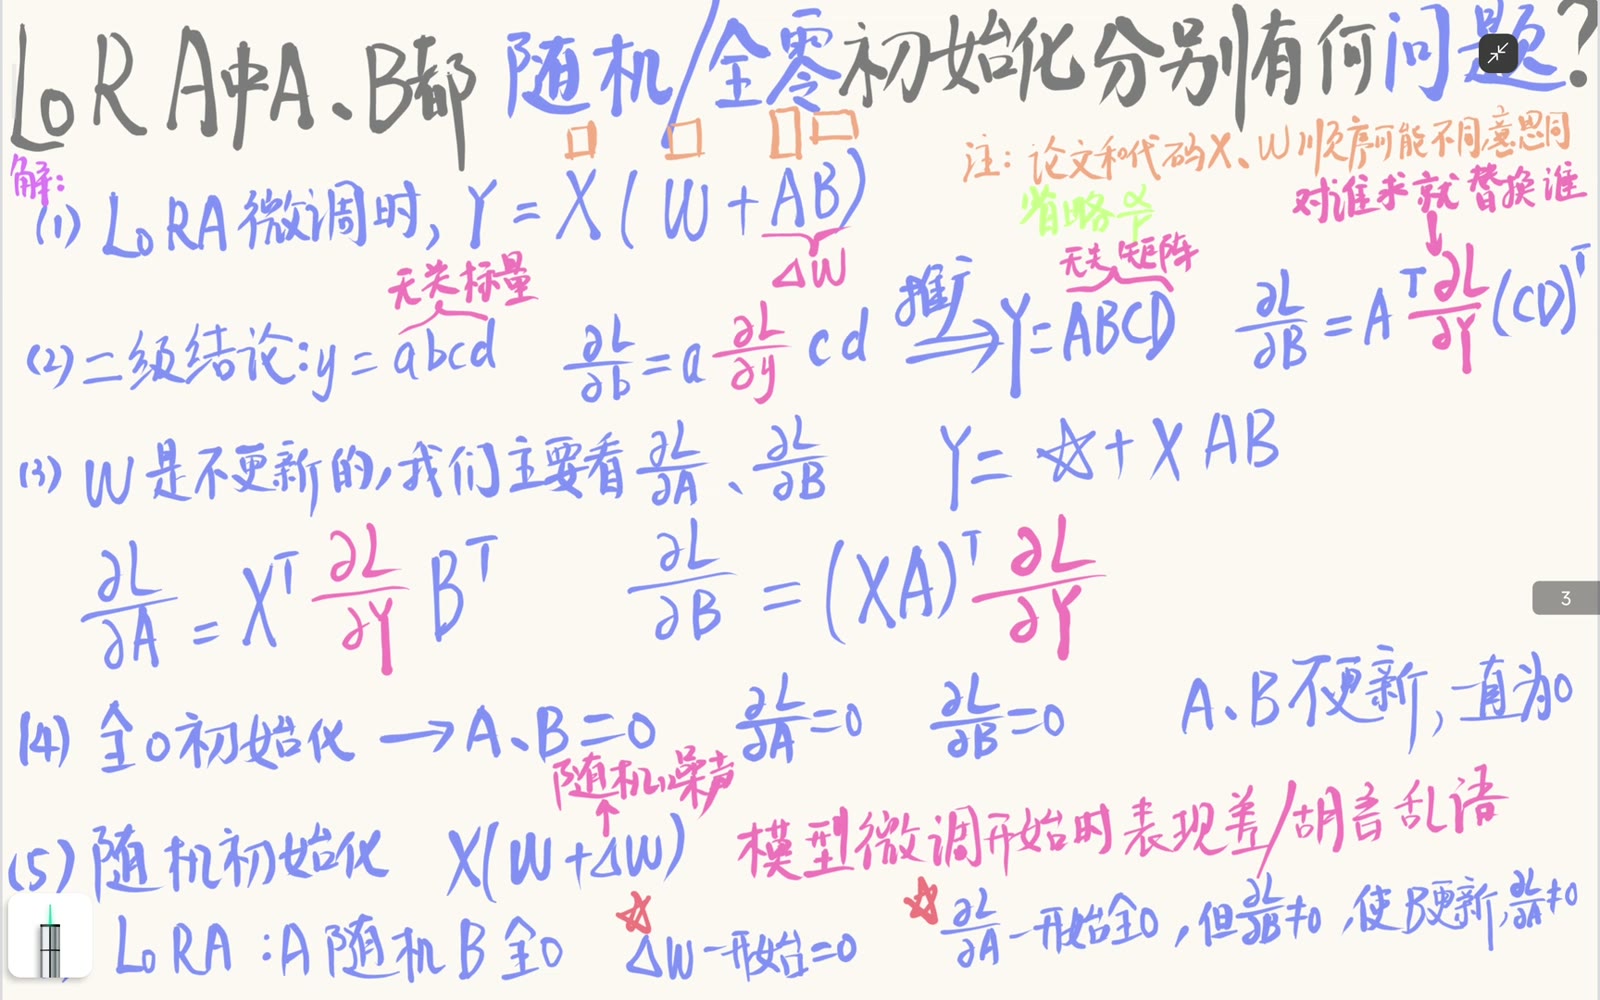 LoRA中A、B都随机/全零初始化分别有何问题?
注：论文和代码X、W顺序可能不同,意思同
解：
(1) LoRA微调时, Y = X(W+AB)
ΔW
省略 α/r
对谁求就替换谁
无关标量
无关矩阵
(2) 二级结论: y = abcd  ∂L/∂b = a ∂L/∂y cd 推广 ⇒ Y=ABCD  ∂L/∂B = A^T ∂L/∂Y (CD)^T
(3) W是不更新的,我们主要看 ∂L/∂A 、 ∂L/∂B  Y = ☆ + XAB
∂L/∂A = X^T ∂L/∂Y B^T  ∂L/∂B = (XA)^T ∂L/∂Y
(4) 全0初始化 → A、B=0  ∂L/∂A=0  ∂L/∂B=0  A、B不更新,一直为0
随机噪声
(5) 随机初始化 X(W+ΔW) 模型微调开始时表现差/胡言乱语
LoRA：A随机B全0 ☆ΔW一开始=0 ☆∂L/∂A一开始全0，但∂L/∂B≠0，使B更新,∂L/∂A≠0
3